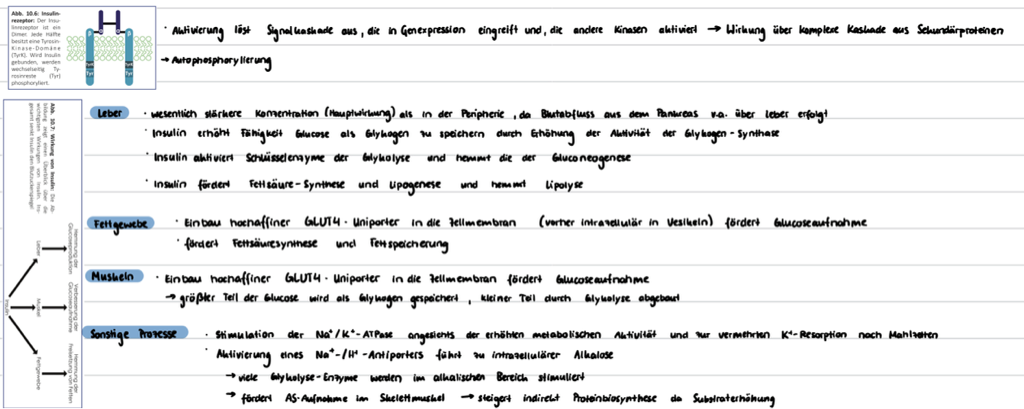 Abb. 10.6: Insulin-
rezeptor: Der Insu-
linrezeptor ist ein
Dimer. Jede Hälfte
besitzt eine Tyrosin-
Kinase-Domäne
(TyrK). Wird Insulin
gebunden, werden
wechselseitig Ty-
rosinreste (Tyr)
phosphoryliert.
Tyr
Tyr
· Aktivierung löst Signalkaskade aus, die in Genexpression eingreift und, die andere Kinasen aktiviert → Wirkung über komplexe Kaskade aus Sekundärproteinen
→ Autophosphorylierung
Abb. 10.7: Wirkung von Insulin: Die Ab-
bildung zeigt einen Überblick über die
wichtigsten Wirkungen von Insulin. Ins-
gesamt senkt Insulin den Blutzuckerspiegel
Insulin
Leber
Muskel
Fettgewebe
Hemmung der
Glucoseproduktion
Verbesserung der
Glucoseaufnahme
Hemmung der
Freisetzung von Fetten
Leber · wesentlich stärkere Konzentration (Hauptwirkung) als in der Peripherie, da Blutabfluss aus dem Pankreas v.a. über Leber erfolgt
· Insulin erhöht Fähigkeit Glucose als Glykogen zu speichern durch Erhöhung der Aktivität der Glykogen-Synthase
· Insulin aktiviert Schlüsselenzyme der Glykolyse und hemmt die der Gluconeogenese
· Insulin fördert Fettsäure-Synthese und Lipogenese und hemmt Lipolyse
Fettgewebe · Einbau hochaffiner GLUT4-Uniporter in die Zellmembran (vorher intrazellulär in Vesikeln) fördert Glucoseaufnahme
· fördert Fettsäuresynthese und Fettspeicherung
Muskeln · Einbau hochaffiner GLUT4-Uniporter in die Zellmembran fördert Glucoseaufnahme
→ größter Teil der Glucose wird als Glykogen gespeichert, kleiner Teil durch Glykolyse abgebaut
Sonstige Prozesse · Stimulation der Na⁺/K⁺-ATPase angesichts der erhöhten metabolischen Aktivität und zur vermehrten K⁺-Resorption nach Mahlzeiten
· Aktivierung eines Na⁺-/H⁺-Antiporters führt zu intrazellulärer Alkalose
→ viele Glykolyse-Enzyme werden im alkalischen Bereich stimuliert
→ fördert AS-Aufnahme im Skelettmuskel → steigert indirekt Proteinbiosynthese da Substraterhöhung